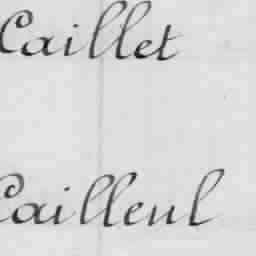 Caillet
Cailleul